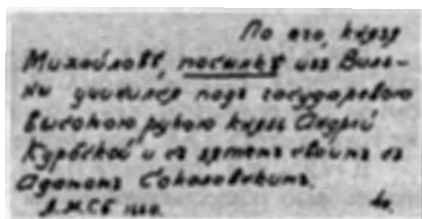 По его, князя
Михайловѣ, посылкѣ изъ Виль-
ни учинился подъ государевою
высокою рукою князь Андрей
Курбской и съ зятемъ своимъ съ
Адамомъ Соколовскимъ.